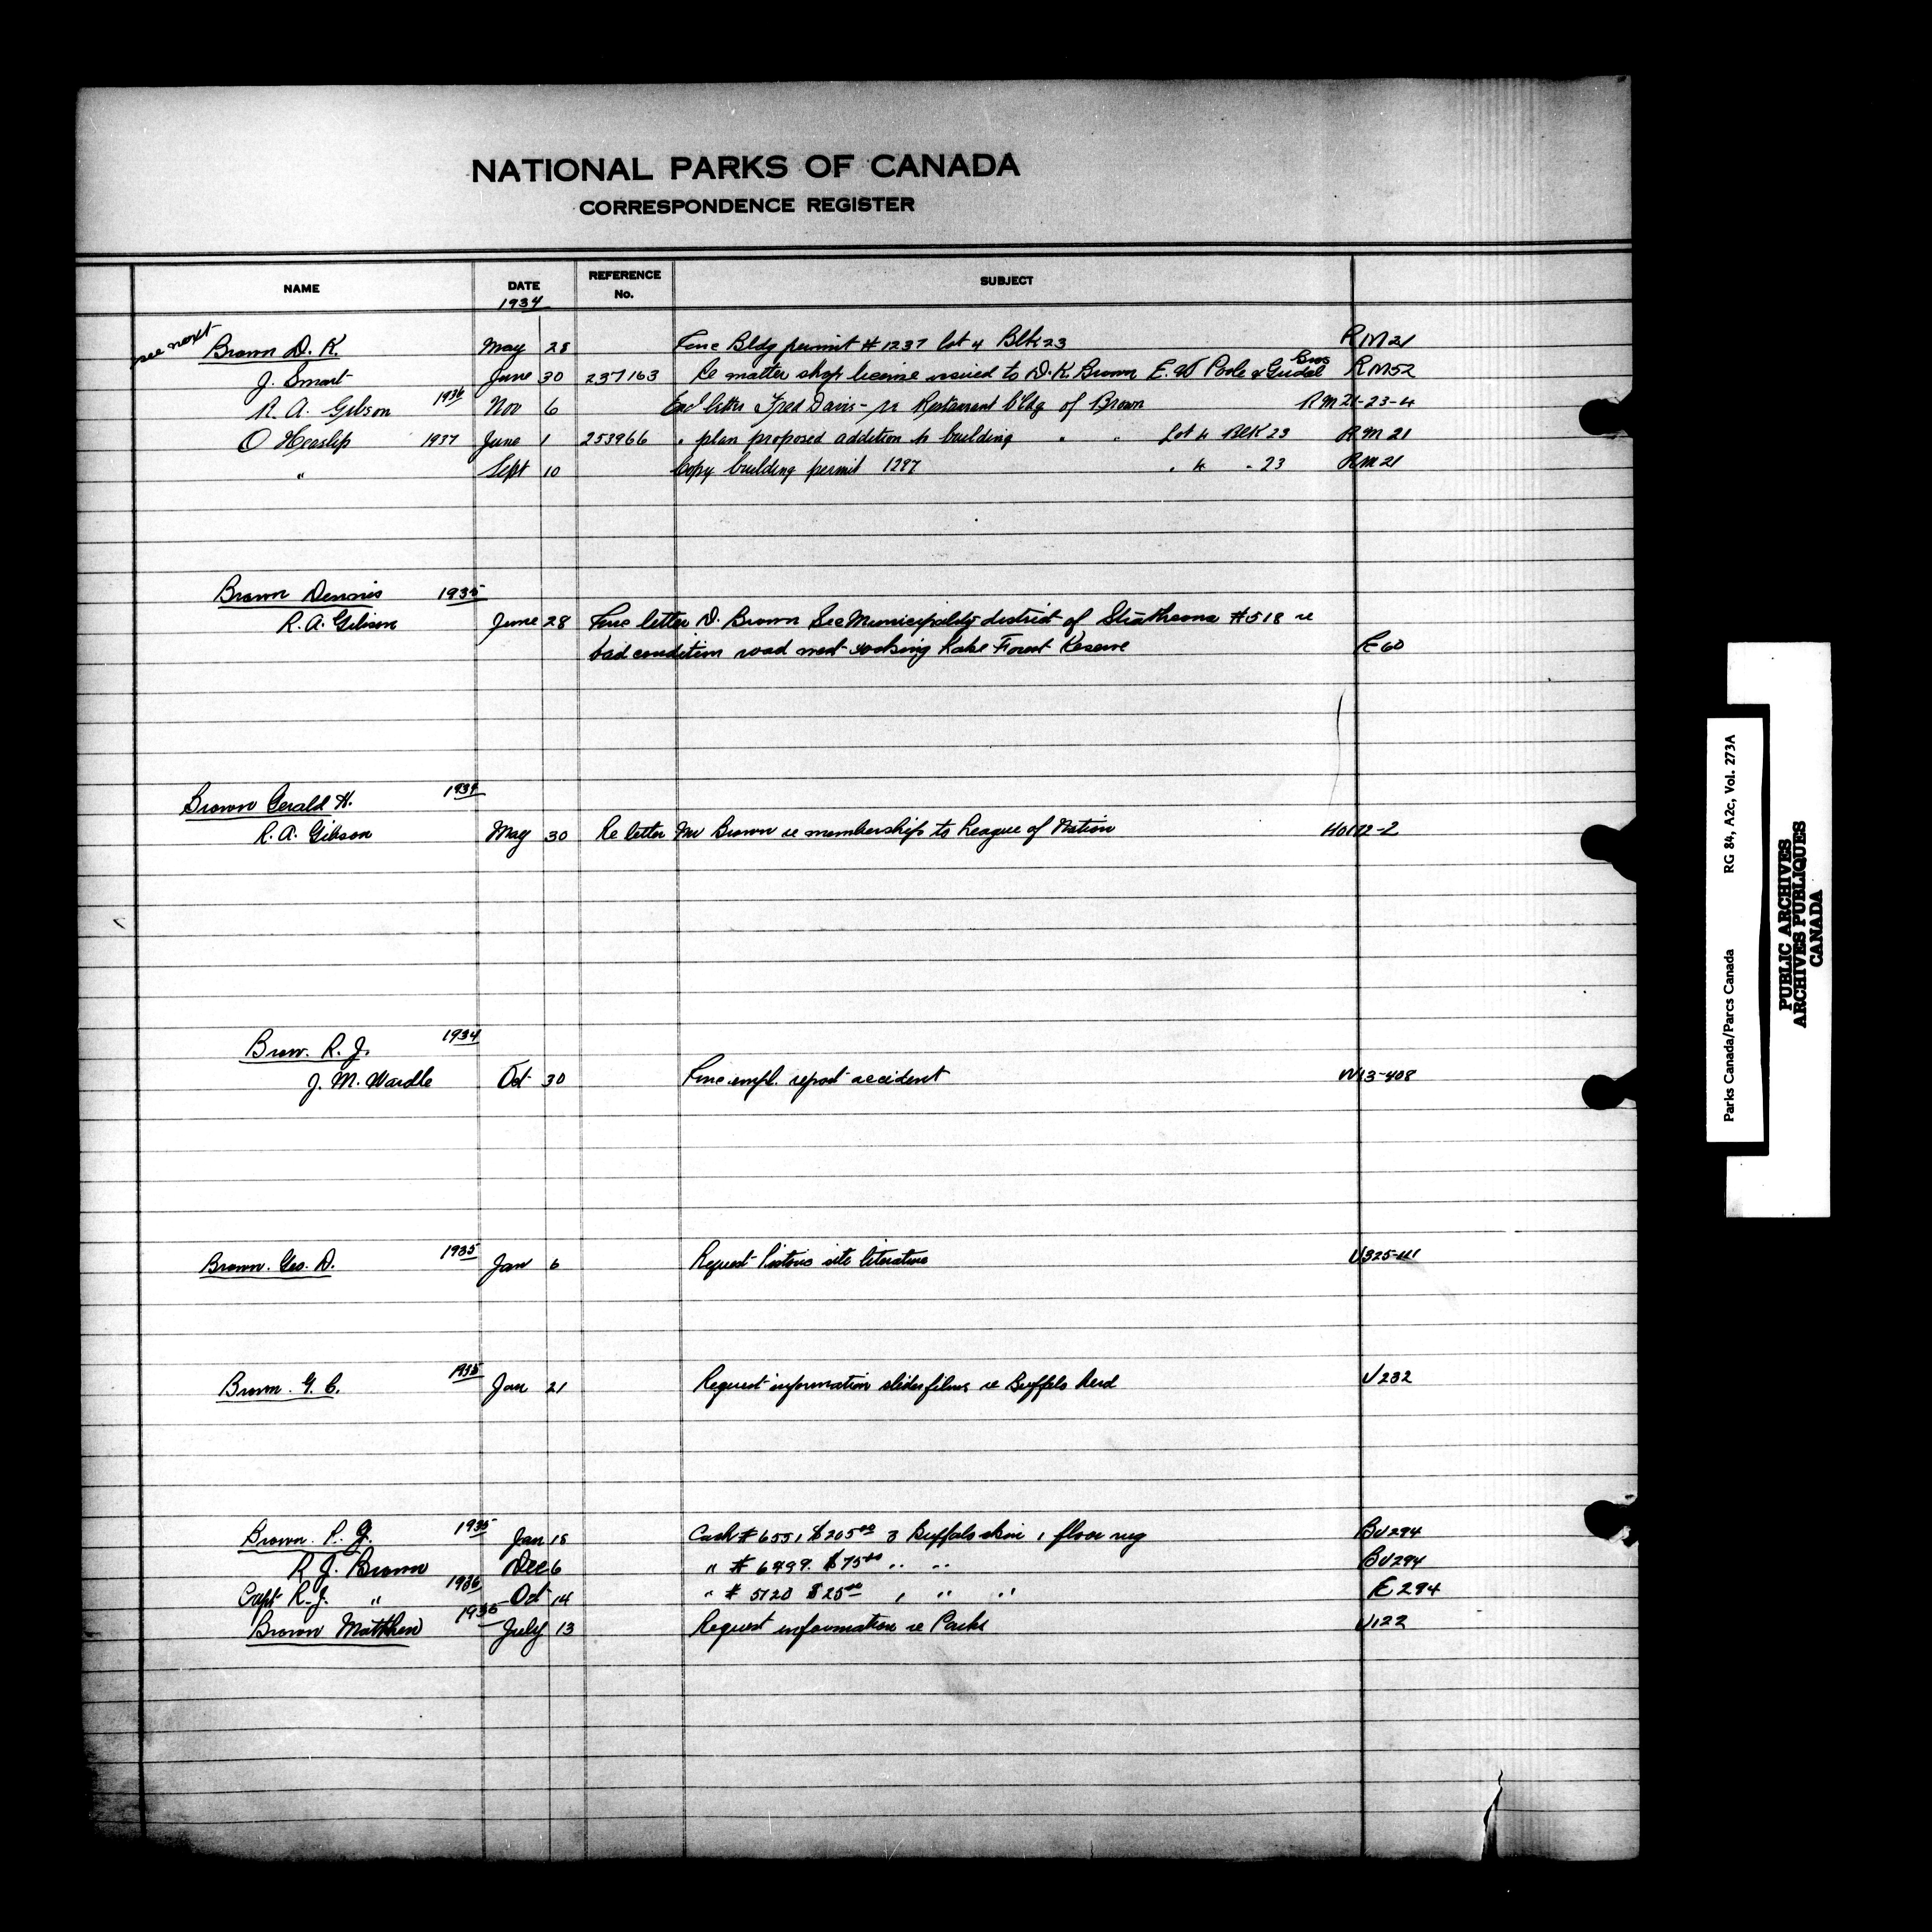 NATIONAL PARKS OF CANADA
CORRESPONDENCE REGISTER
NAME DATE REFERENCE No. SUBJECT
1934
see next Brown D. K. May 28 Bldg permit # 1237 lot 4 Blk 23 RM21
J. Smart June 30 237163 Re matter shop license issued to D. K. Brown E. W Poole & Bros RM52
R. A. Gibson 1936 Nov 6 Encl letter Fred Davis - re Restaurant bldg of Brown RM21-23-4
O Heaslip 1937 June 1 253966 " plan proposed addition to building " " Lot 4 Blk 23 RM21
" Sept 10 Copy building permit 1297 " 4 " 23 RM21
Brown Dennis 1935
R. A. Gibson June 28 letter D. Brown Sec Municipality district of Strathcona #518 re
bad condition road west Cooking Lake Forest Reserve E60
Brown Gerald H. 1934
R. A. Gibson May 30 Re letter Mr Brown re membership to League of Nation 2
Brow. R. J. 1934
J. M. Wardle Oct 30 empl. report accident W13-408
Brown. Geo. D. 1935 Jan 6 Request historic site literature U325
Brown. G. C. 1935 Jan 21 Request information slides films re Buffalo herd U232
Brown. R. J. 1935 Jan 18 Cash # 6551 $205.00 3 Buffalo skin 1 floor rug BU294
R J. Brown Dec 6 " # $75.00 " " BU294
Capt R. J. " 1936 Oct 14 " # 5120 $25.00 1 " " E294
Brown Matthew July 13 Request information re Parks U122
Parks Canada/Parcs Canada RG 84, A2c, Vol. 273A
PUBLIC ARCHIVES
ARCHIVES PUBLIQUES
CANADA